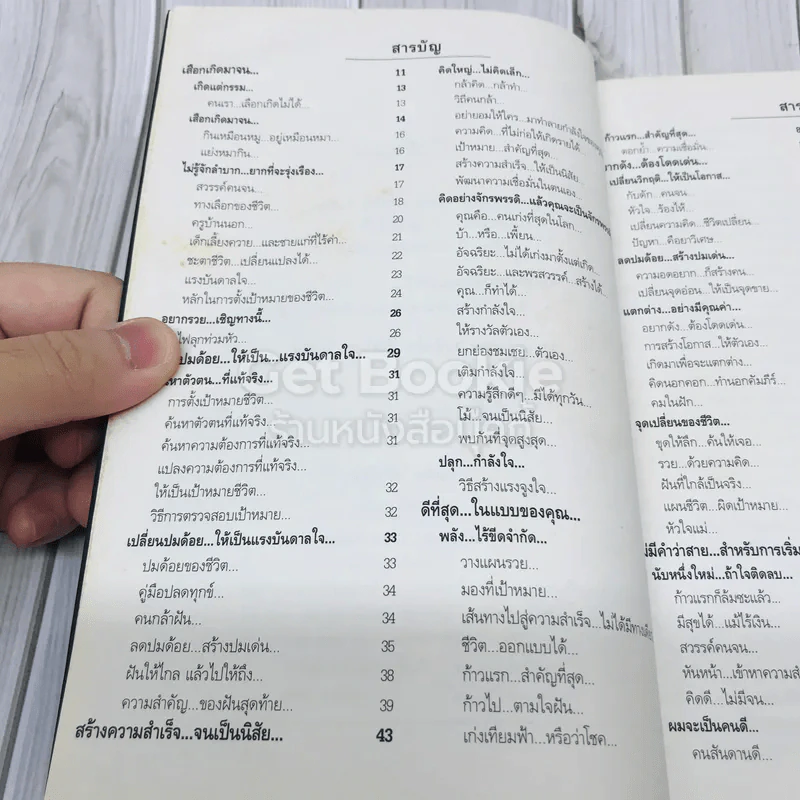 สารบัญ
เสือกเกิดมาจน... 11
เกิดแต่กรรม... 13
คนเรา...เลือกเกิดไม่ได้... 13
เสือกเกิดมาจน... 14
กินเหมือนหมู...อยู่เหมือนหมา... 16
แย่งหมากิน... 16
ไม่รู้จักลำบาก...ยากที่จะรุ่งเรือง... 17
สวรรค์คนจน... 17
ทางเลือกของชีวิต... 18
ครูบ้านนอก... 20
เด็กเลี้ยงควาย...และชายแก่ที่ไร้ค่า... 21
ชะตาชีวิต...เปลี่ยนแปลงได้... 22
แรงบันดาลใจ... 23
หลักในการตั้งเป้าหมายของชีวิต... 24
อยากรวย...เชิญทางนี้... 26
ไฟลุกท่วมหัว... 26
ปมด้อย...ให้เป็น...แรงบันดาลใจ... 29
หาตัวตน...ที่แท้จริง... 31
การตั้งเป้าหมายชีวิต... 31
ค้นหาตัวตนที่แท้จริง... 31
ค้นหาความต้องการที่แท้จริง... 31
แปลงความต้องการที่แท้จริง...
ให้เป็นเป้าหมายชีวิต... 32
วิธีการตรวจสอบเป้าหมาย... 32
เปลี่ยนปมด้อย...ให้เป็นแรงบันดาลใจ... 33
ปมด้อยของชีวิต... 33
คู่มือปลดทุกข์... 34
คนกล้าฝัน... 34
ลดปมด้อย...สร้างปมเด่น... 35
ฝันให้ไกล แล้วไปให้ถึง... 38
ความสำคัญ...ของฝันสุดท้าย... 39
สร้างความสำเร็จ...จนเป็นนิสัย... 43
คิดใหญ่...ไม่คิดเล็ก...
กล้าคิด...กล้าทำ...
วิถีคนกล้า...
อย่ายอมให้ใคร...มาทำลายกำลังใจ
ความคิด...ที่ไม่ก่อให้เกิดรายได้...
เป้าหมาย...สำคัญที่สุด...
สร้างความสำเร็จ...ให้เป็นนิสัย...
พัฒนาความเชื่อมั่นในตนเอง...
คิดอย่างจักรพรรดิ...แล้วคุณจะเป็น
คุณคือ...คนเก่งที่สุดในโลก...
บ้า...หรือ...เพี้ยน...
อัจฉริยะ...ไม่ได้เก่งมาตั้งแต่เกิด...
อัจฉริยะ...และพรสวรรค์...สร้างได้...
คุณ...ก็ทำได้...
สร้างกำลังใจ...
ให้รางวัลตัวเอง...
ยกย่องชมเชย...ตัวเอง...
เติมกำลังใจ...
ความรู้สึกดีๆ...มีได้ทุกวัน...
โม้...จนเป็นนิสัย...
พบกันที่จุดสูงสุด...
ปลุก...กำลังใจ...
วิธีสร้างแรงจูงใจ...
ดีที่สุด...ในแบบของคุณ...
พลัง...ไร้ขีดจำกัด...
วางแผนรวย...
มองที่เป้าหมาย...
เส้นทางไปสู่ความสำเร็จ...ไม่ได้มีทางเดียว
ชีวิต...ออกแบบได้...
ก้าวแรก...สำคัญที่สุด...
ก้าวไป...ตามใจฝัน...
เก่งเทียมฟ้า...หรือว่าโชค...
สาร
ก้าวแรก...สำคัญที่สุด...
ตอกย้ำ...ความเชื่อมั่น...
ากดัง...ต้องโดดเด่น...
เปลี่ยนวิกฤติ...ให้เป็นโอกาส...
กับดัก...คนจน...
หัวใจ...ร้องไห้...
เปลี่ยนความคิด...ชีวิตเปลี่ยน...
ปัญหา...คือยาวิเศษ...
ลดปมด้อย...สร้างปมเด่น...
ความอดอยาก...ก็สร้างคน...
เปลี่ยนจุดอ่อน...ให้เป็นจุดขาย...
แตกต่าง...อย่างมีคุณค่า...
อยากดัง...ต้องโดดเด่น...
การสร้างโอกาส...ให้ตัวเอง...
เกิดมาเพื่อจะแตกต่าง...
คิดนอกคอก...ทำนอกคัมภีร์...
คมในฝัก...
จุดเปลี่ยนของชีวิต...
ขุดให้ลึก...ค้นให้เจอ...
รวย...ด้วยความคิด...
ฝันที่ใกล้เป็นจริง...
แผนชีวิต...ผิดเป้าหมาย...
หัวใจแม่...
ไม่มีคำว่าสาย...สำหรับการเริ่ม
นับหนึ่งใหม่...ถ้าใจติดลบ...
ก้าวแรกก็ล้มซะแล้ว...
มีสุขได้...แม้ไร้เงิน...
สวรรค์คนจน...
หันหน้า...เข้าหาความสำ
คิดดี...ไม่มีจน...
ผมจะเป็นคนดี...
คนสันดานดี...
Get Bookie
ร้านหนังสือ